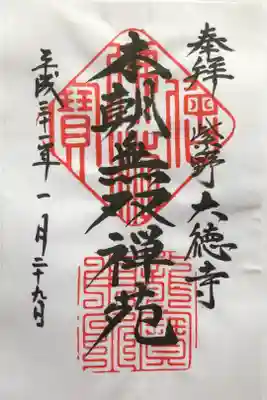 奉拝 紫野大徳寺
本朝無双禅苑
平成三十一年一月二十九日